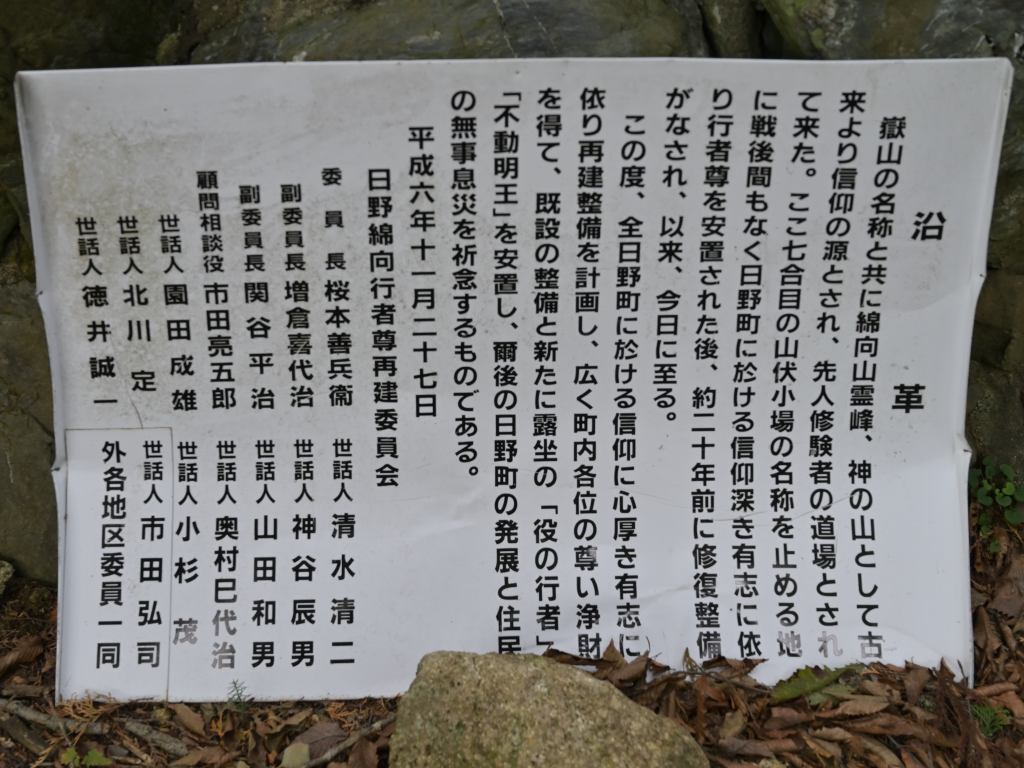 沿革
嶽山の名称と共に綿向山霊峰、神の山として古
来より信仰の源とされ、先人修験者の道場とされ
て来た。ここ七合目の山伏小場の名称を止める地
に戦後間もなく日野町に於ける信仰深き有志に依
り行者尊を安置された後、約二十年前に修復整備
がなされ、以来、今日に至る。
この度、全日野町に於ける信仰に心厚き有志に
依り再建整備を計画し、広く町内各位の尊い浄財
を得て、既設の整備と新たに露坐の「役の行者」
「不動明王」を安置し、爾後の日野町の発展と住民
の無事息災を祈念するものである。
平成六年十一月二十七日
日野綿向行者尊再建委員会
委員長 桜本善兵衞
副委員長 増倉喜代治
副委員長 関谷平治
顧問相談役 市田亮五郎
世話人 園田成雄
世話人 北川定
世話人 徳井誠一
世話人 清水清二
世話人 神谷辰男
世話人 山田和男
世話人 奥村巳代治
世話人 小杉茂
世話人 市田弘司
外各地区委員一同